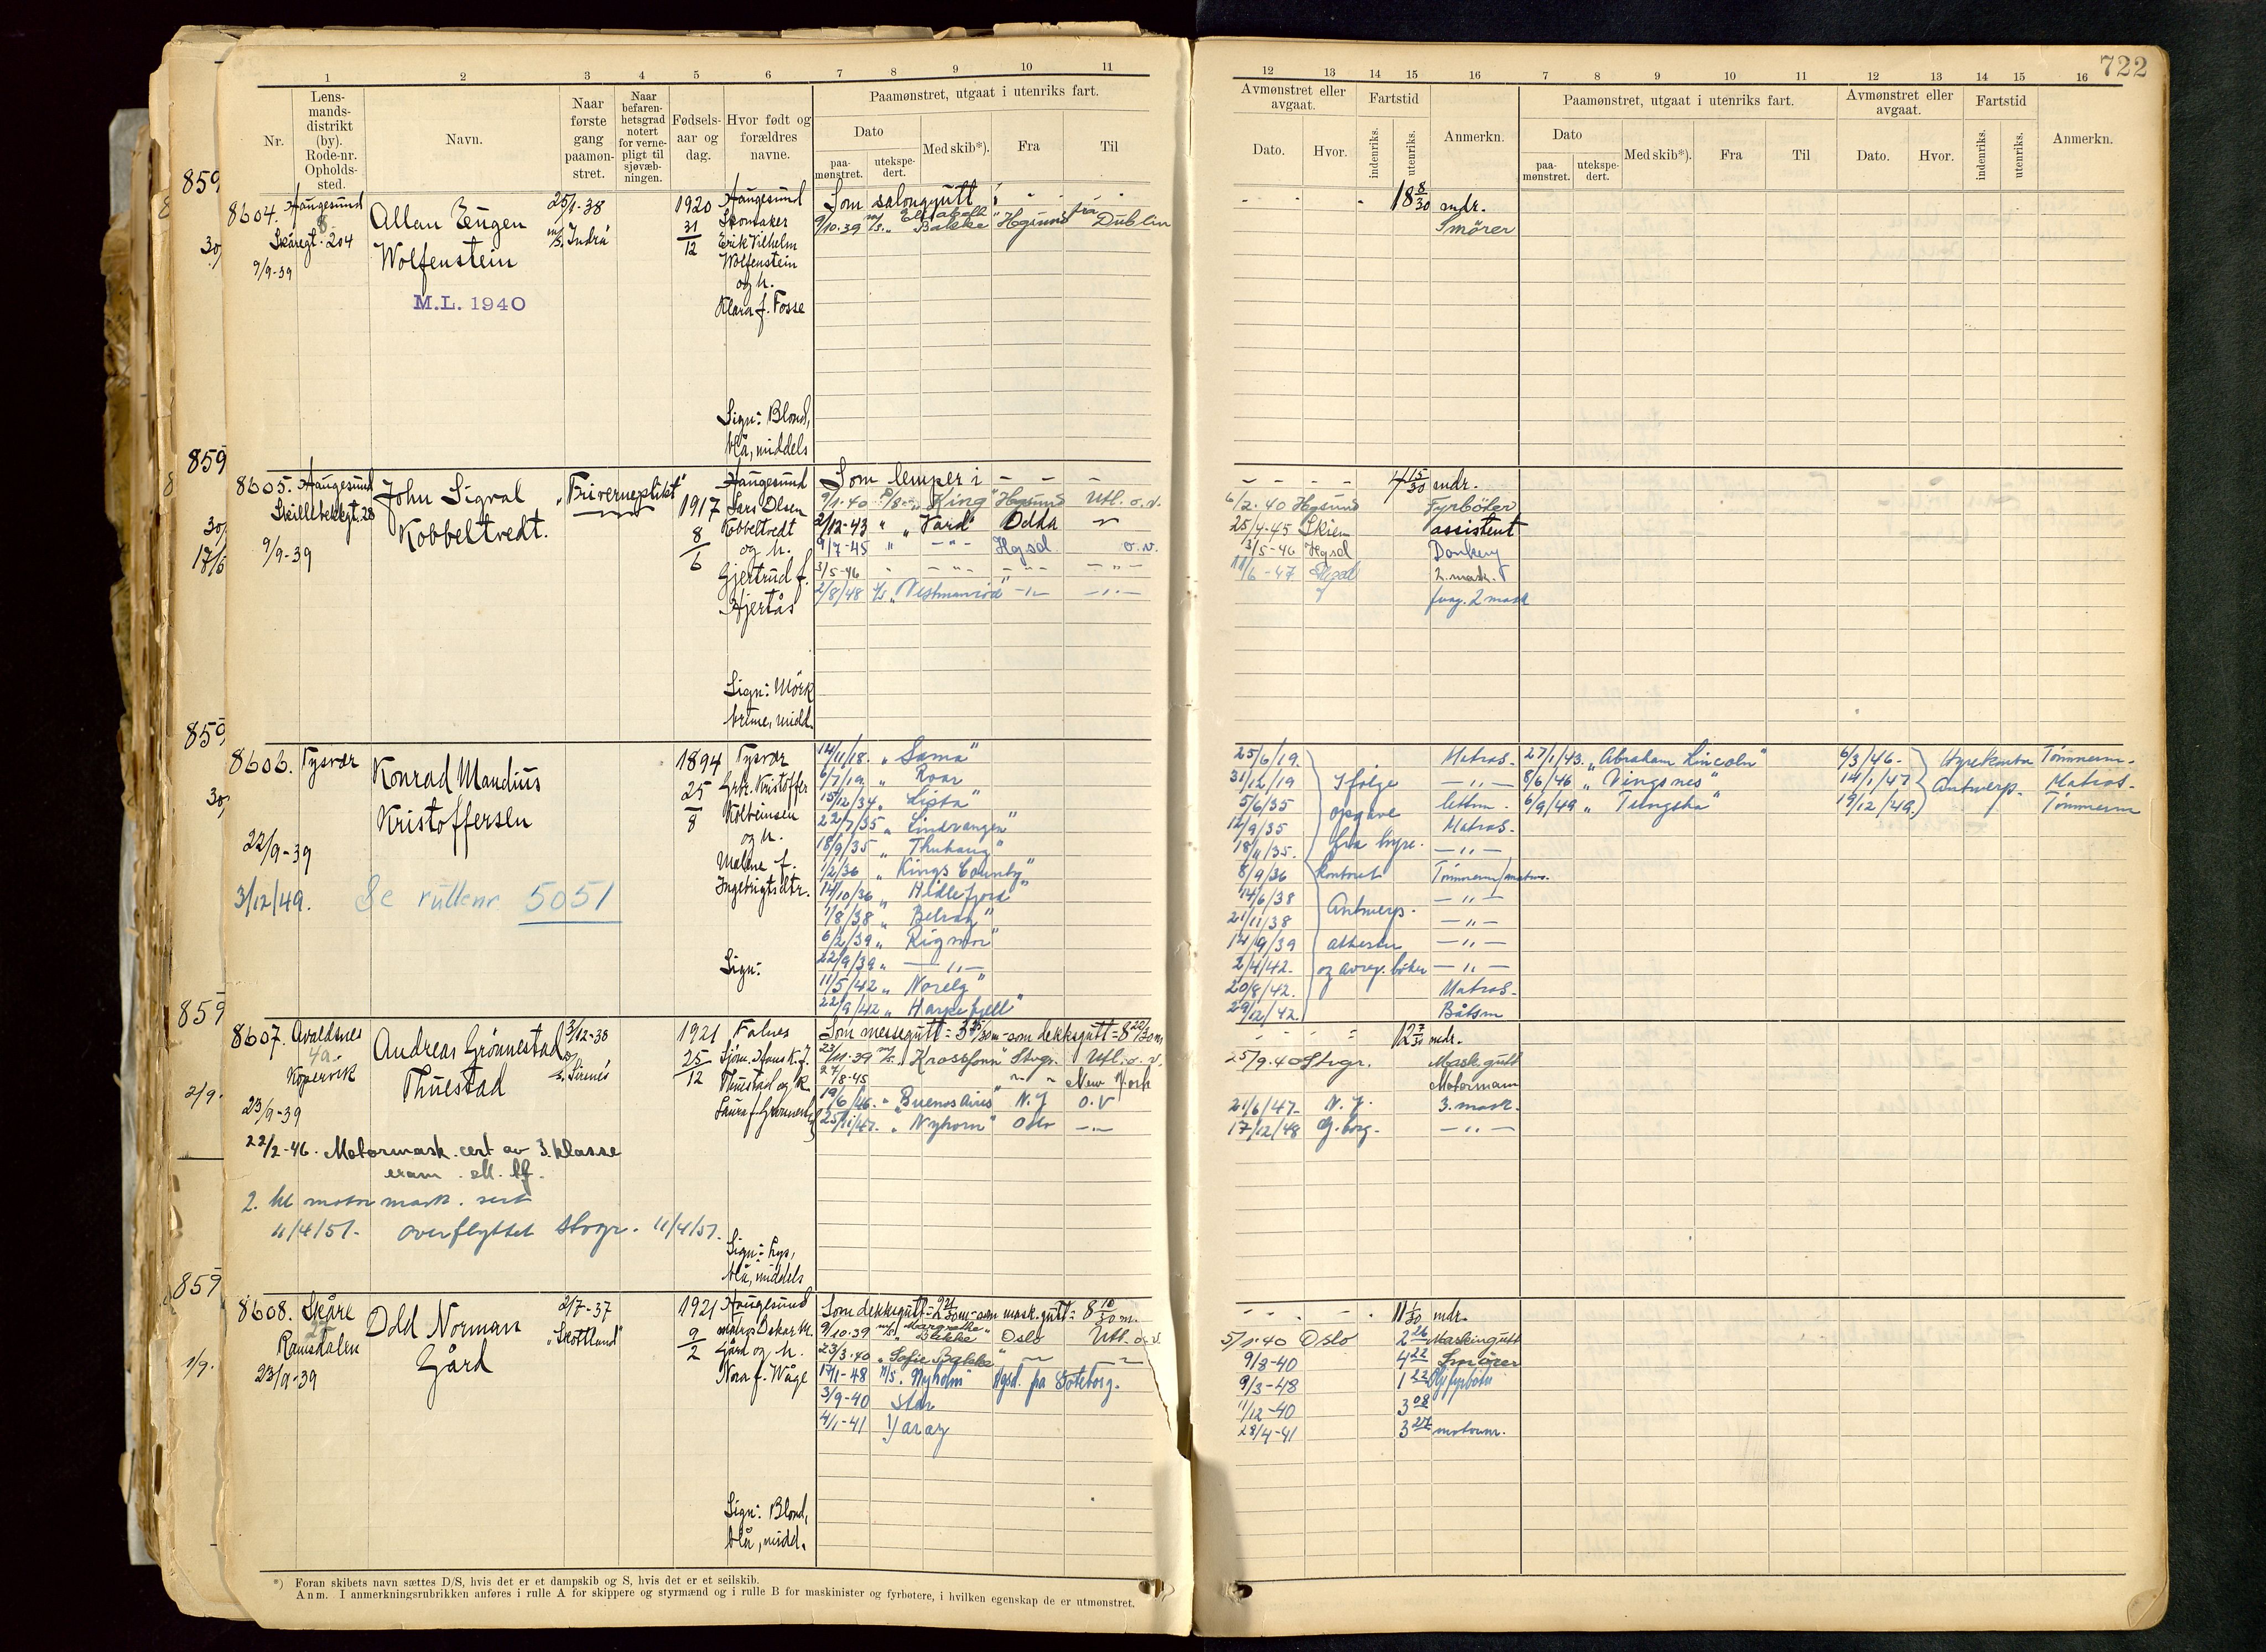 722
1 2 3 4 5 6 7 8 9 10 11
12 13 14 15 16 7 8 9 10 11 12 13 14 15 16
Nr.
Lens-
mands-
distrikt
(by).
Rode-nr.
Opholds-
sted.
Navn.
Naar
første
gang
paamøn-
stret.
Naar
befaren-
hetsgrad
notert
for verne-
pligt til
sjøvæb-
ningen.
Fødsels-
aar og
dag.
Hvor født og
forældres
navne.
Paamønstret, utgaat i utenriks fart.
Dato
paa-
mønstret.
utekspe-
dert.
Med skib*).
Fra
Til
Avmønstret eller
avgaat.
Dato.
Hvor.
Fartstid
indenriks.
utenriks.
Anmerkn.
Paamønstret, utgaat i utenriks fart.
Dato
paa-
mønstret.
utekspe-
dert.
Med skib*).
Fra
Til
Avmønstret eller
avgaat.
Dato.
Hvor.
Fartstid
indenriks.
utenriks.
Anmerkn.
859
8604. Haugesund
8
Skåregt. 204
9/9-39
Allan Eugen
Wolfenstein
M.L. 1940
25/1-38
m/s. Indra
1920
31/12
Haugesund
Skomaker
Erik Vilhelm
Wolfenstein
og h.
Klara f. Fosse
Sign: Blond,
blå, middels
Som salongutt i - - -
9/10-39 m/s. "Elisabeth Bakke" Hgsund fra Dublin
- - - 18 8/30 mdr.
Smörer
859
8605. Haugesund
Skillebekkgt. 28
9/9-39
John Sigval
Kobbeltvedt.
"Friverneplikt"
1917
8/6
Haugesund
Lars Olsen
Kobbeltvedt
og h.
Gjertrud f.
Hjertås
Sign: Mörk
brune, midd.
Som lemper i - - -
9/1-40 D/S "King" Hgsund Utl. o.v.
2/12-43 " "Vard" Odda
9/7-45 " -"- Hgsd o.v.
3/5-46 " -"- -"- -"-
2/8/48 -"- -"-
- - - - 15/30 mdr.
6/2-40 Hgsund Fyrböter
25/4-45 Skien assistent
3/5-46 Hgsd Donkey
2. mask.
fung. 2 mask
859
8606. Tysvær
22/9-39
3/12/49.
Konrad Mandius
Kristoffersen
Se rullenr 5051
1894
25/8
Tysvær
Grbr. Kristoffer
Kolbeinsen
og h.
Malene f.
Ingebrigtsdtr.
Sign:
14/11/18. " "Sama"
6/7/19 " Roar
15/12/34 " Lista"
22/7/35 " Lindvangen"
18/9/35 " Thuhaug"
1/2/36 " Kings County"
14/10/36 " Hidlefjord"
1/8/38 " Belray"
6/2/39 " Rigmor"
22/9/39 " -"-
11/5/42 " Norelg"
22/9/42 " Harpefjell"
25/6/19. Matros-
31/12/19 Ifølge -"-
5/6/35 opgave lettm.
12/9/35 Matros-
18/11/35. fra hyre- -"-
8/9/36 kontoret Tömmerm/matros.
14/6/38 -"-
21/11/38 Antwerp. -"-
14/9/39 attester -"-
2/4/42. og avreg. böker -"-
20/8/42. Matros-
29/12/42. Båtsm
27/1/43. "Abraham Lincoln" 6/3/46- Hyrekontor Tömmerm-
8/6/46 "Vingsnes" 14/1/47 Antwerp- Matros-
6/9/49 " Tungsha" 19/12/49. Tömmerm
859
8607. Avaldsnes
4a.
Kopervik
23/9-39
Andreas Grönnestad
Thuestad
3/12-38
Sirenes
1921
25/12
Falnes
Sjöm. Hans K. J.
Thuestad og h.
Laura f. Grönnestad
22/2-46. Motormask. cert av 3. klasse
2. kl motor mask. sert
11/4/51- overflyttet Stvgr. 11/4/51.
Sign: Lys,
blå, middels
Som messegutt = 3 15/30m - som dekksgutt = 8 22/30m
23/11-39 m/s. "Krossfonn" Stvgr. Utl. o. v.
27/8-45 " " New York
19/6/46. " "Buenos Aires" N.Y O.V
25/11/47. " "Nyhorn" Oslo -"-
- - = 12 7/30 mdr.
25/9-40 Stvgr. Mask.gutt
Motormann
21/6/47- N.Y. 3. mask.
17/12/48 G.borg- -"-
859
8608. Skåre
25
Ramsdalen
23/9-39
Odd Norman
Gård
2/7-37
"Skottland"
1921
9/2
Haugesund
Matros Oskar M.
Gård og h.
Nora f. Våge
Sign: Blond,
blå, midd.
Som dekksgutt = som mask.gutt = 8 10/30 m.
9/10-39 m/s "Margrethe Bakke" Oslo Utl. o. v.
23/3-40 "Sofie Bakke"
17/1-48 M/S. "Nyholm" Hgsd. fra Göteborg.
3/9-40 Star
4/1-41 Yaray
- - - - 11 1/30 mdr.
5/1-40 Oslo 2 26 Maskingutt
9/8-40 4 22 Smörer
9/3-48 1 22
11/12-40 3 08
28/4-41 3 24 motorm.
*) Foran skibets navn sættes D/S, hvis det er et dampskib og S, hvis det er et seilskib.
Anm. I anmerkningsrubrikken anføres i rulle A for skippere og styrmænd og i rulle B for maskinister og fyrbøtere, i hvilken egenskap de er utmønstret.